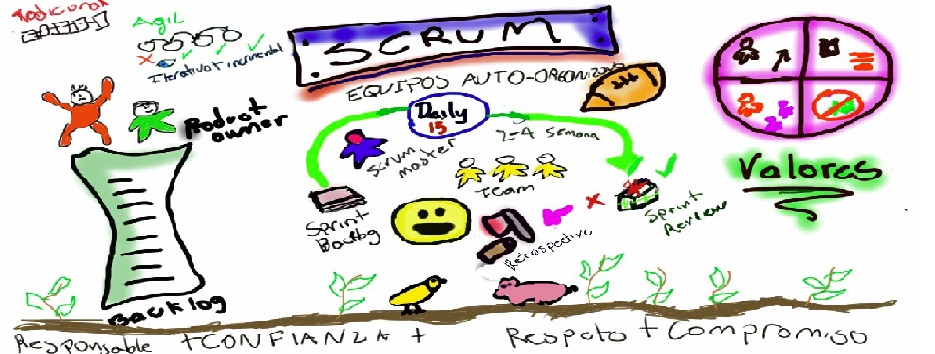 Tradicional
Agil
Iterativo+incremental
SCRUM
EQUIPOS AUTO-ORGANIZADOS
Daily
15
2-4 semana
Product
owner
Scrum
master
Team
Sprint
Backlog
Retrospectiva
Sprint
Review
Valores
Backlog
Responsable +CONFIANZA + Respeto + Compromiso